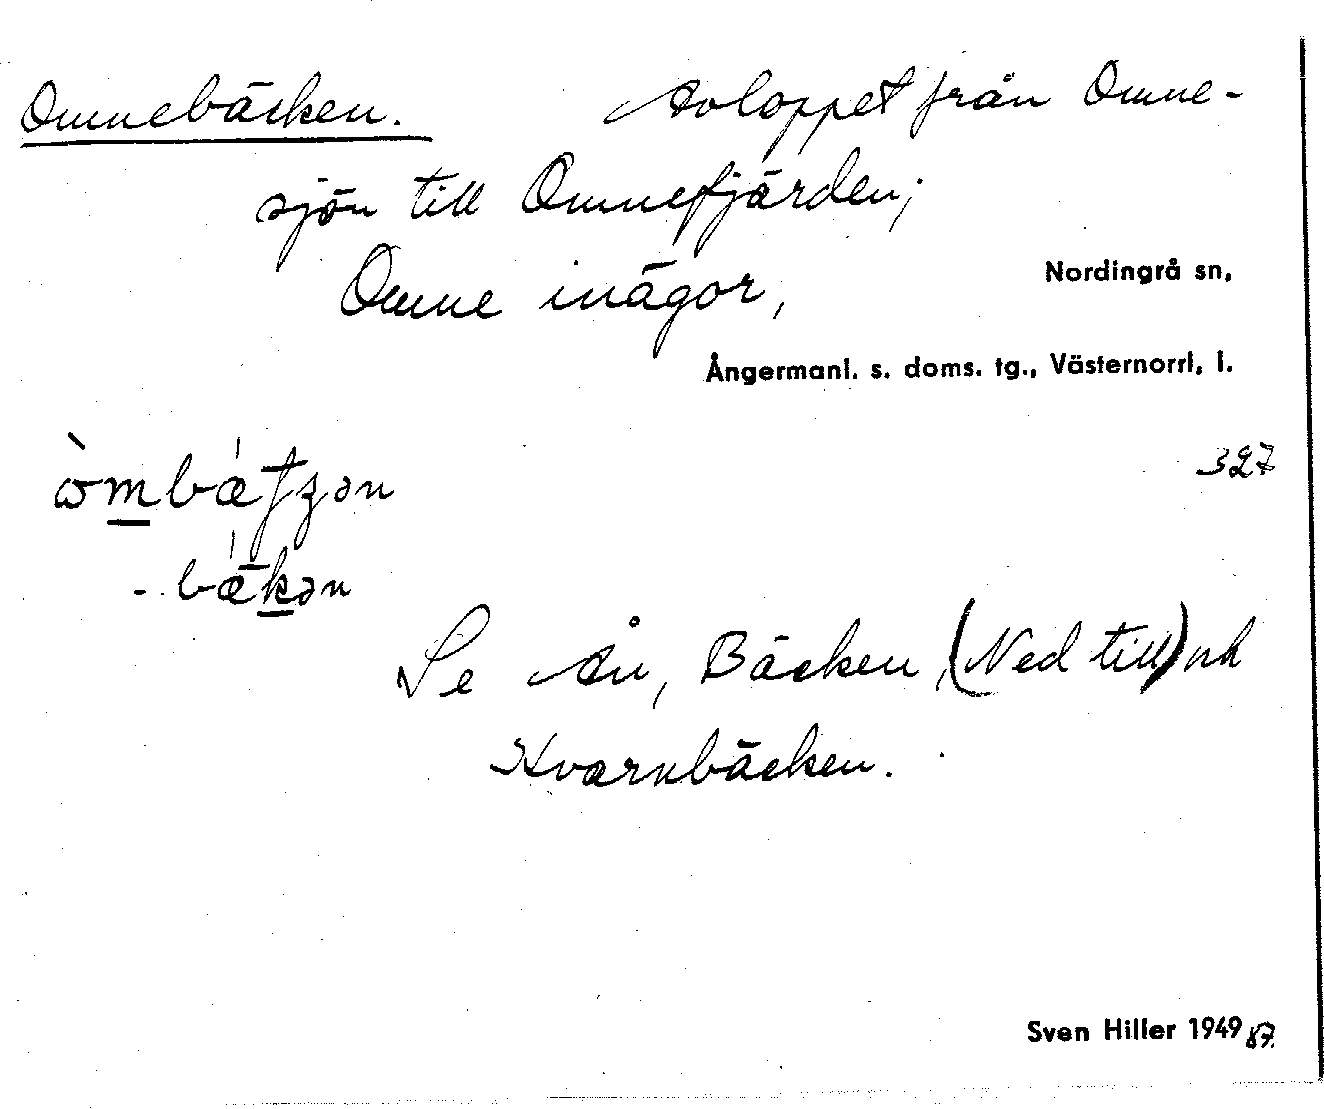 Omnebäcken. Avloppet från Omne-
sjön till Omnefjärden;
Omne inägor,
Nordingrå sn,
Ångermanl. s. doms. tg., Västernorrl. l.
327
Se Ån, Bäcken, (Ned till) och
Kvarnbäcken.
Sven Hiller 1949